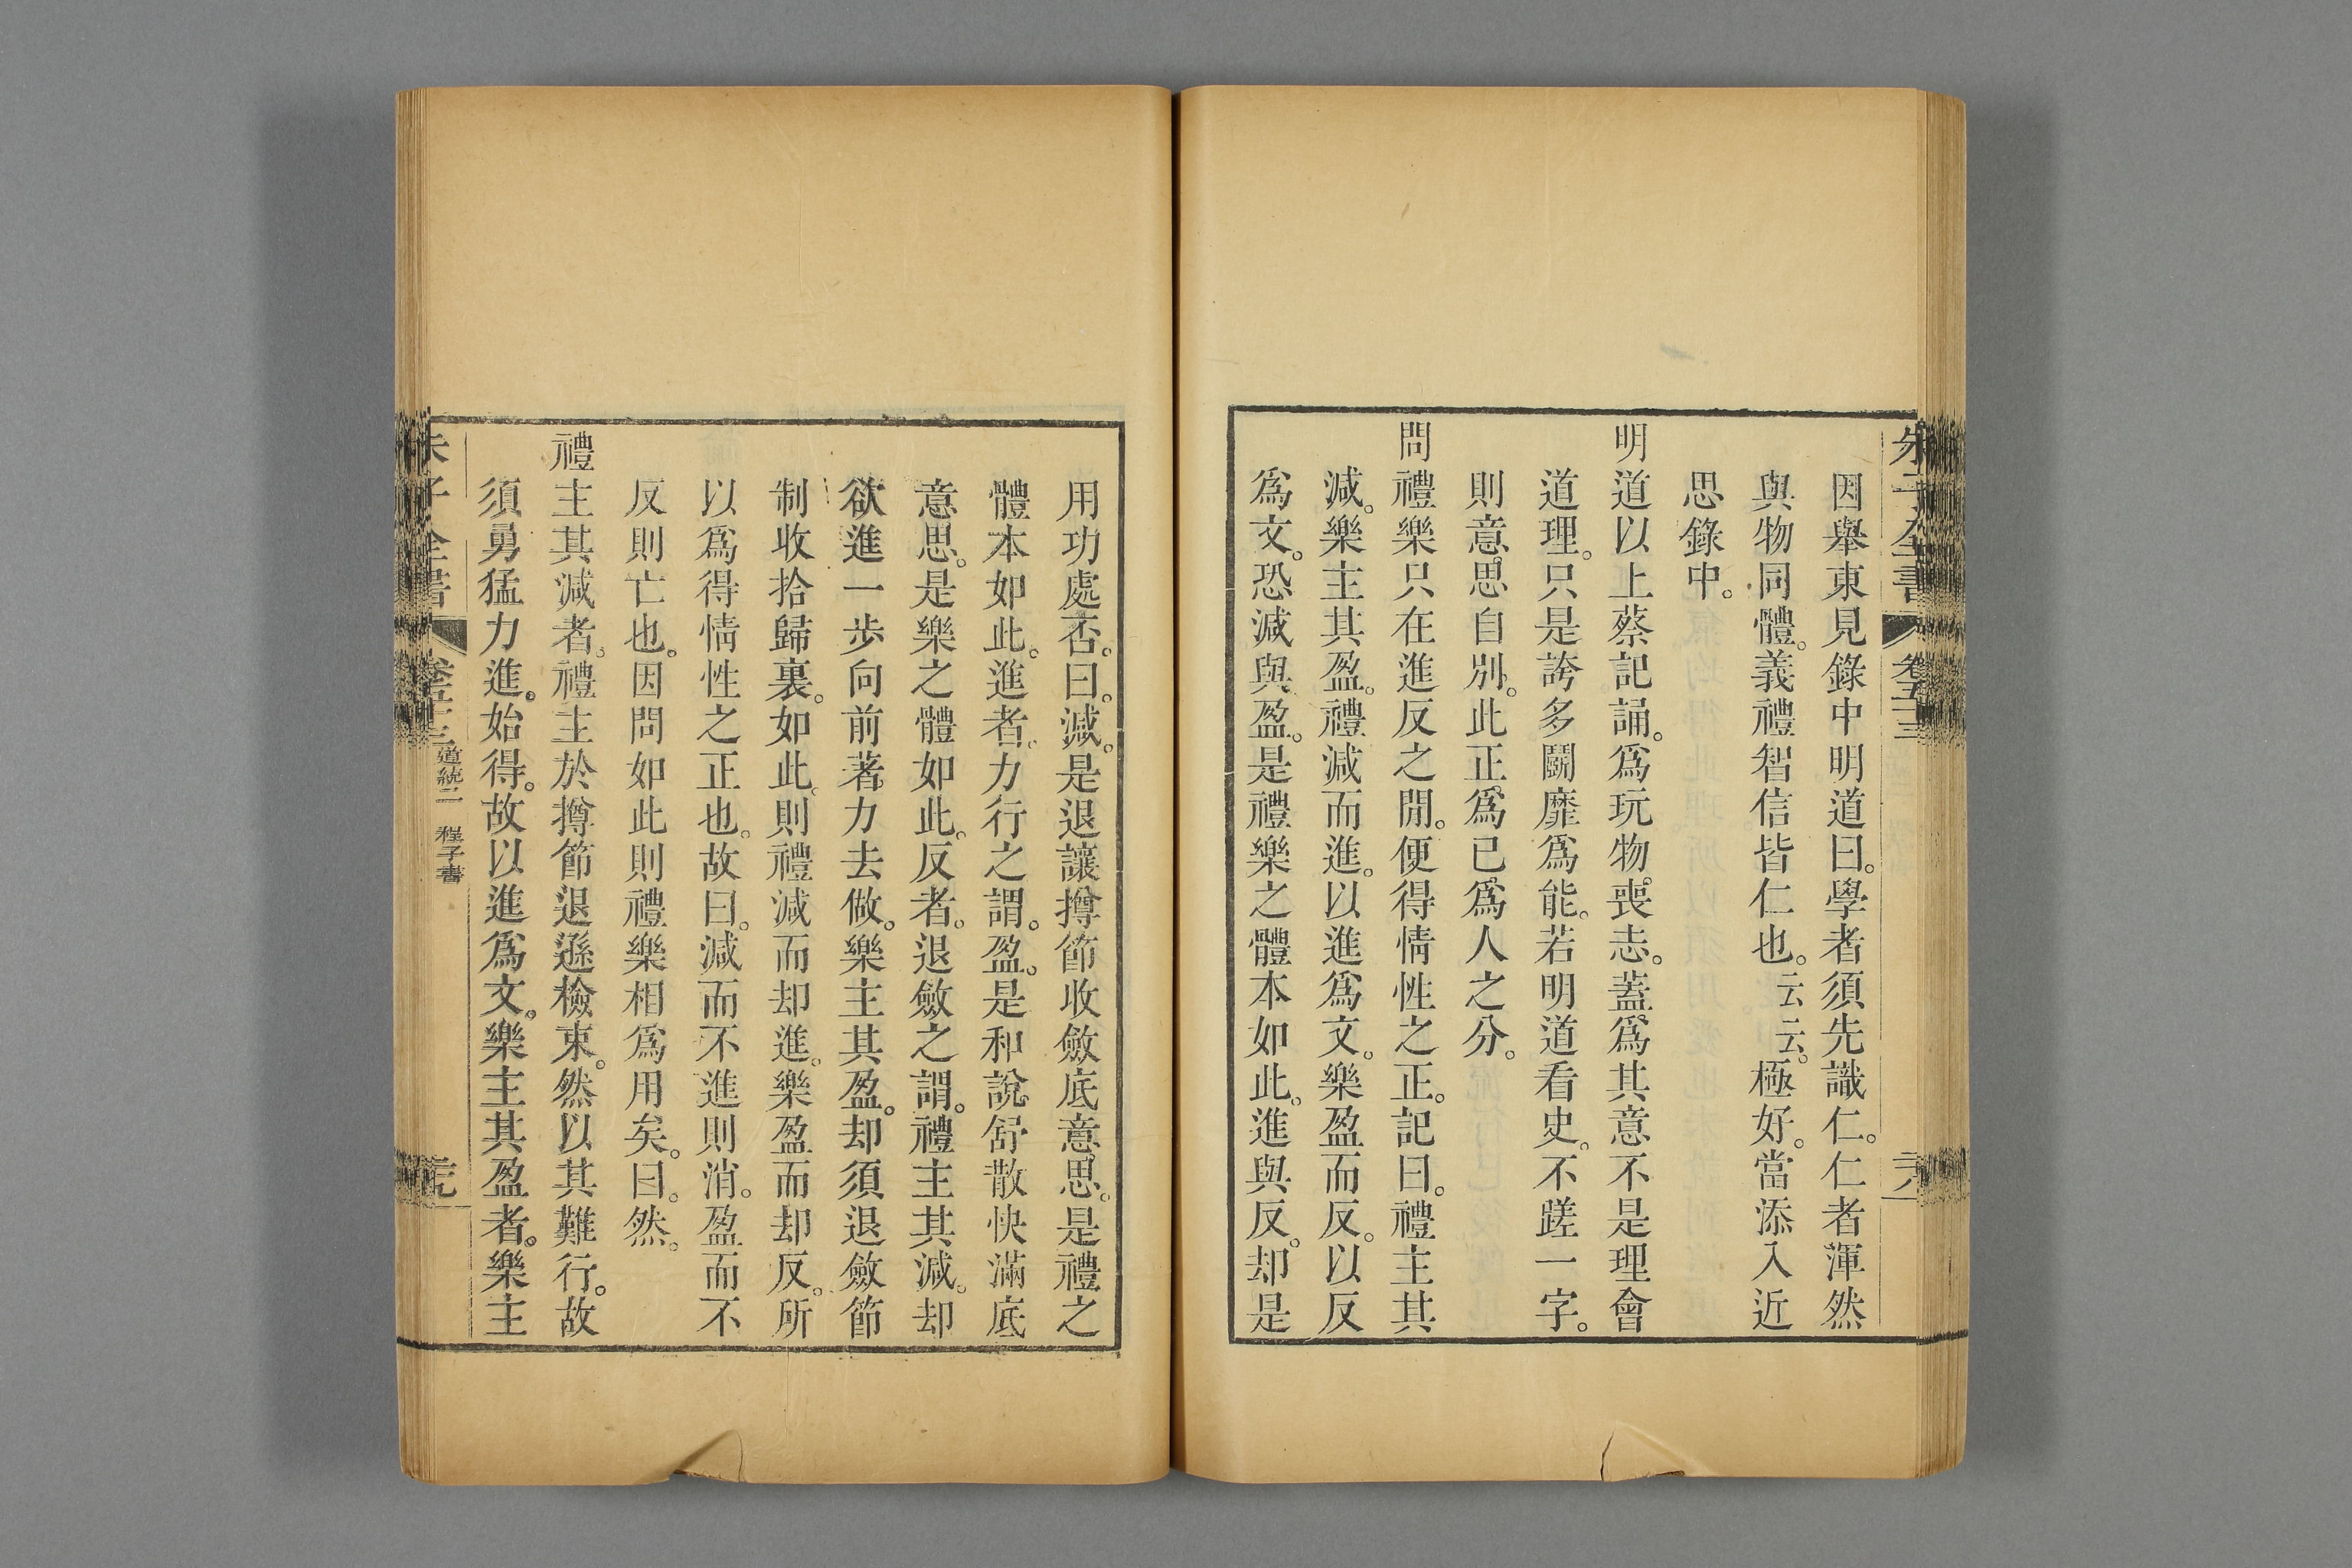 朱子全書 卷五十三
因舉東見錄中明道曰。學者須先識仁。仁者渾然
與物同體。義禮智信皆仁也。云云。極好。當添入近
思錄中。
明道以上蔡記誦。爲玩物喪志。蓋爲其意不是理會
道理。只是誇多鬭靡爲能。若明道看史。不蹉一字。
則意思自別。此正爲己爲人之分。
問禮樂只在進反之閒。便得情性之正。記曰。禮主其
減。樂主其盈。禮減而進。以進爲文。樂盈而反。以反
爲文。恐減與盈。是禮樂之體本如此。進與反。却是
用功處否。曰。減。是退讓撙節收斂底意思。是禮之
體本如此。進者。力行之謂。盈。是和說舒散快滿底
意思。是樂之體如此。反者。退斂之謂。禮主其減。却
欲進一步向前著力去做。樂主其盈。却須退斂節
制收拾歸裏。如此。則禮減而却進。樂盈而却反。所
以爲得情性之正也。故曰。減而不進則消。盈而不
反則亡也。因問如此則禮樂相爲用矣。曰。然。
禮主其減者。禮主於撙節退遜檢束。然以其難行。故
須勇猛力進。始得。故以進爲文。樂主其盈者。樂主
朱子全書 卷五十三 道統二 程子書